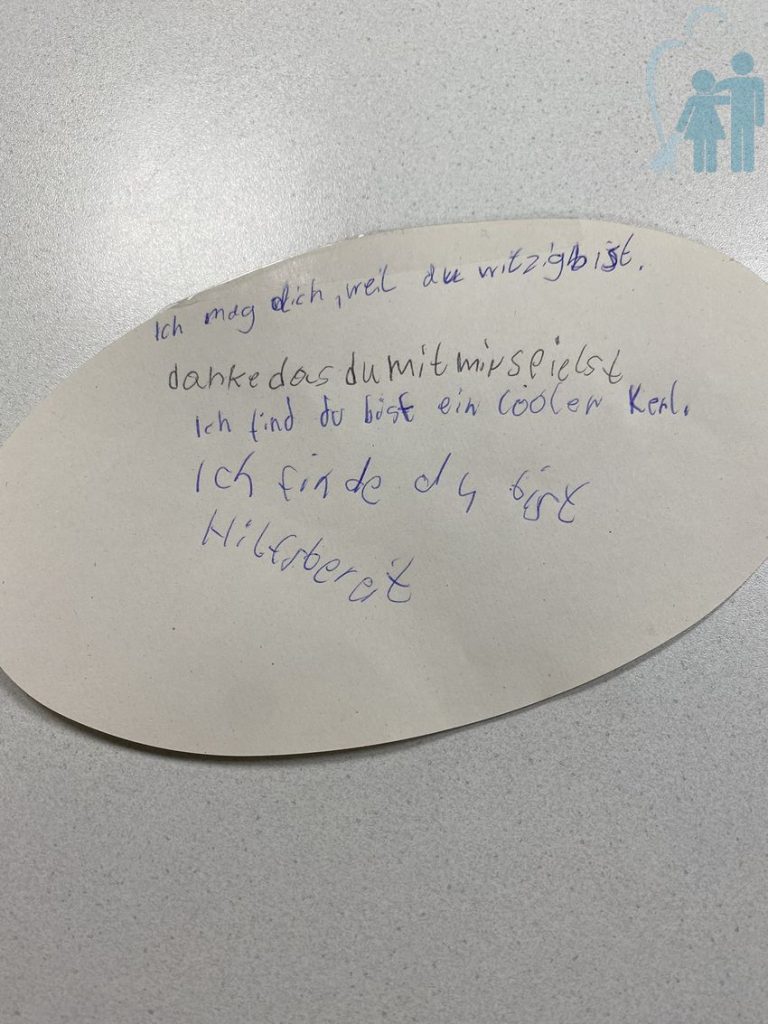 Ich mag dich, weil du witzig bist.
danke das du mit mir spielst
Ich find du bist ein cooler Kerl.
Ich finde du bist
Hilfsbereit